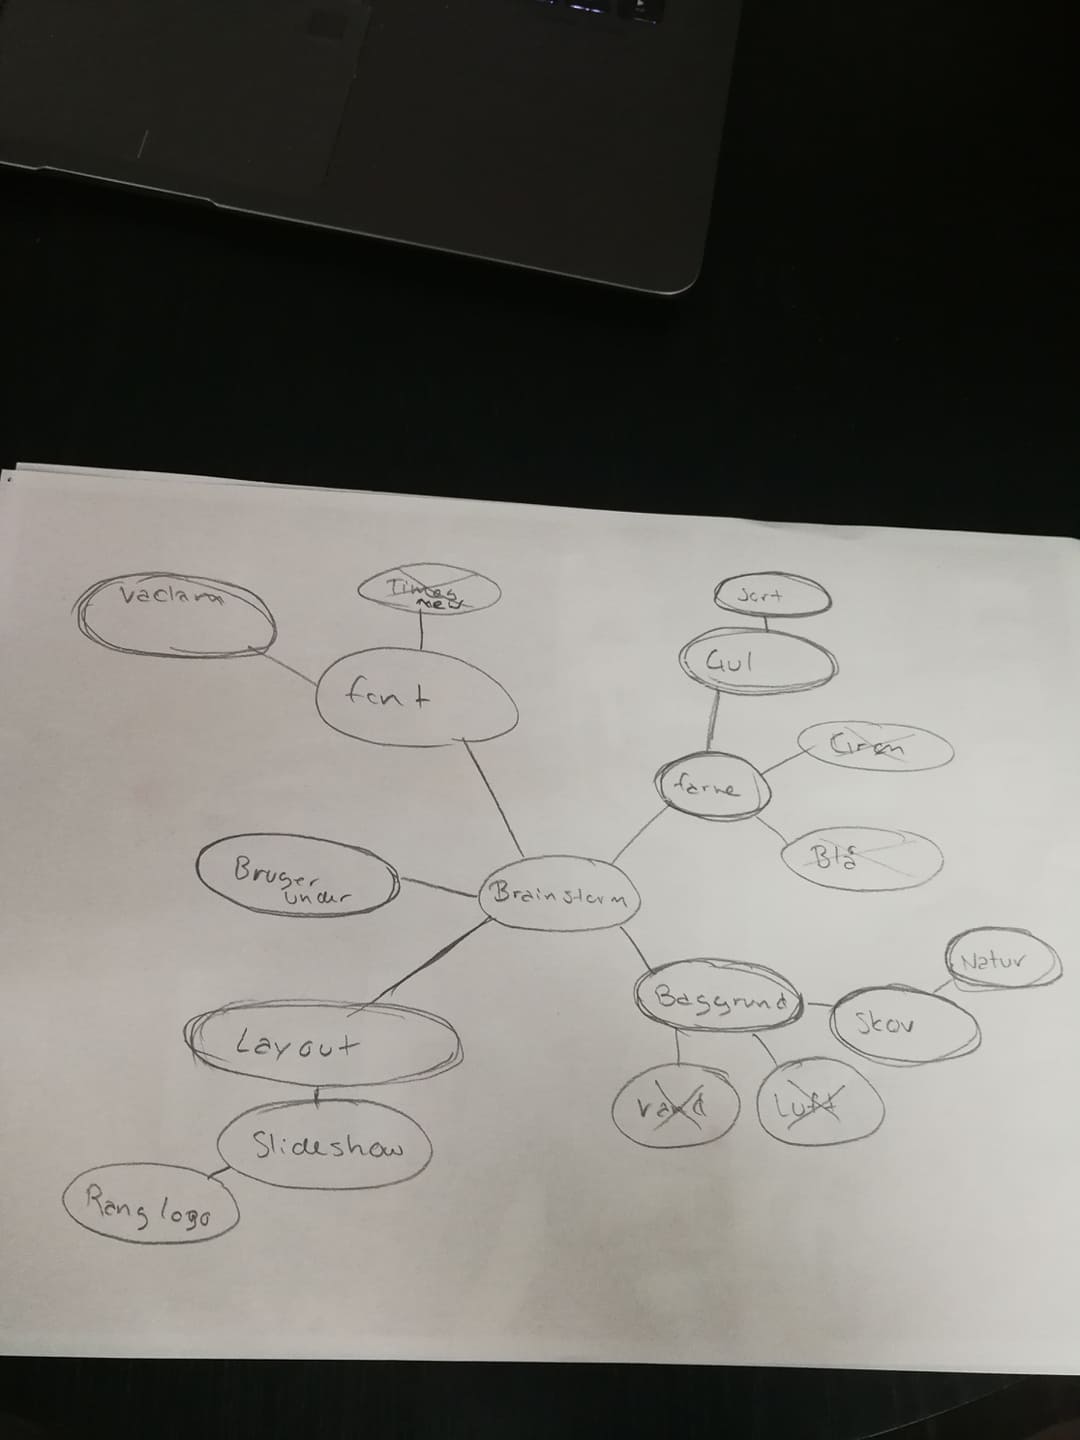 Times
new
Vaclara
font
Sort
Gul
Grøn
farve
Blå
Bruger
under
Brainstorm
Natur
Baggrund
Skov
Layout
Vand
Luft
Slideshow
Rang logo